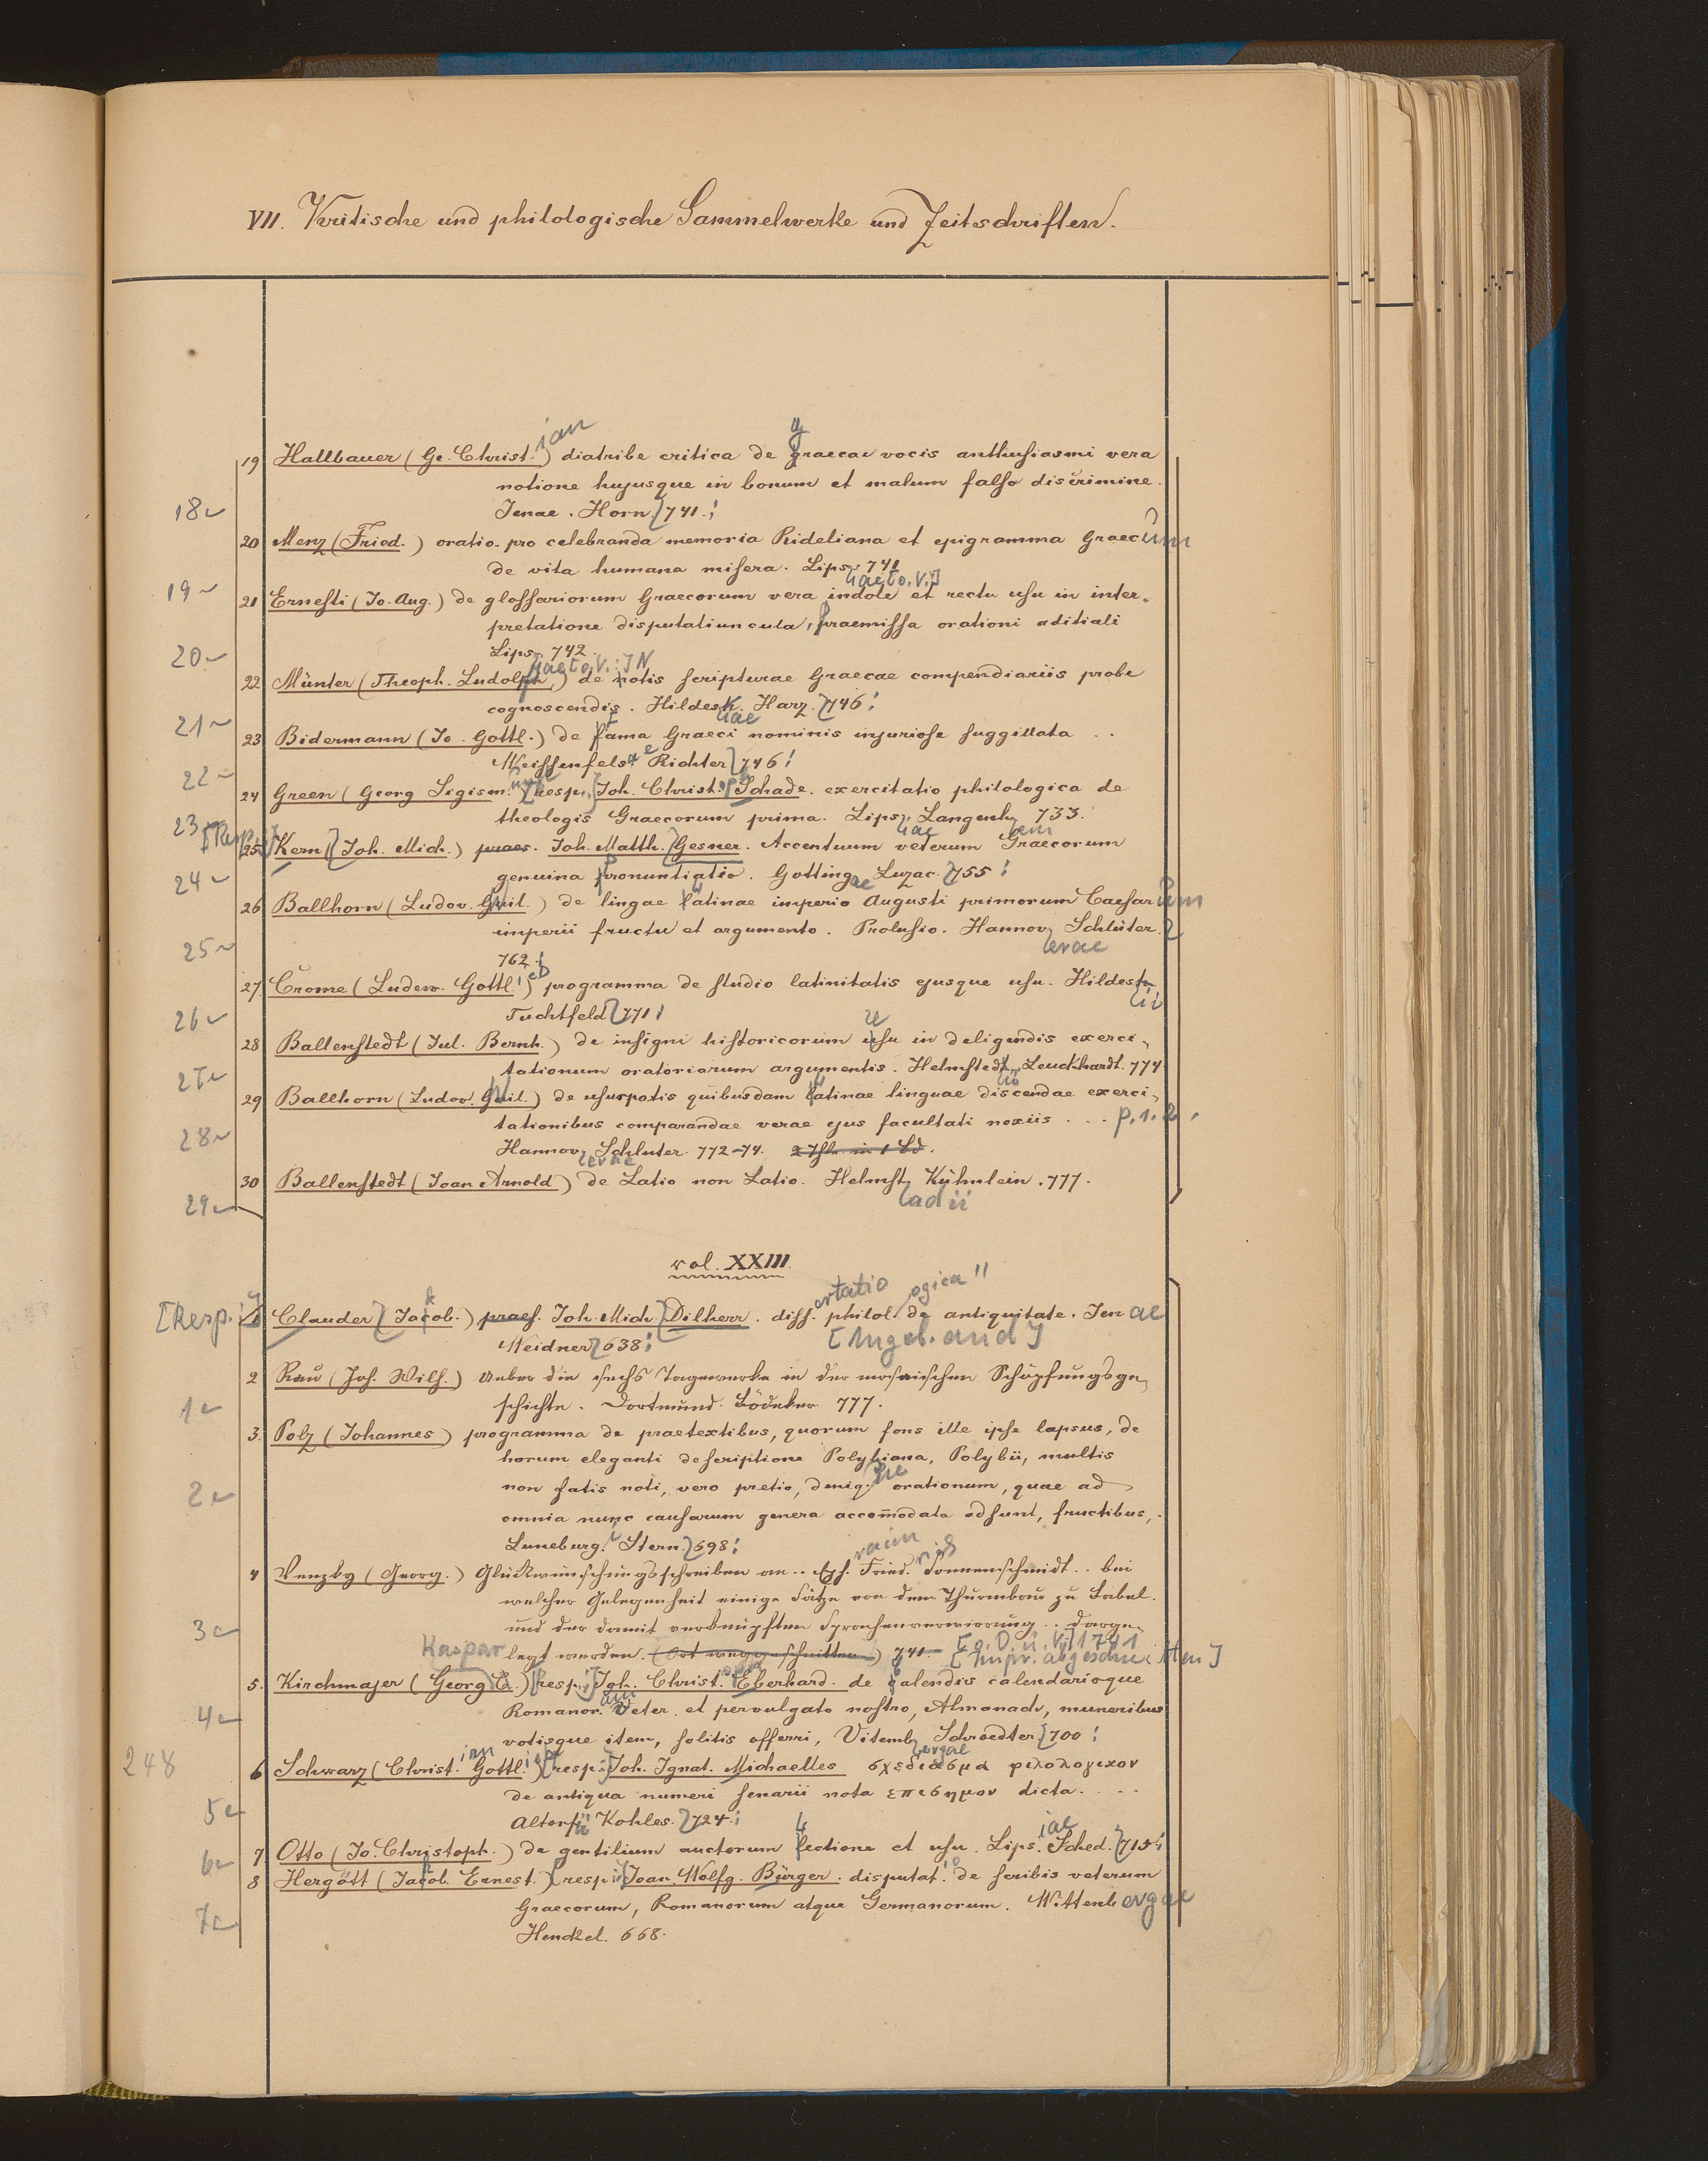 VII. Kritische und philologische Sammelwerke und Zeitschriften.
19 Hallbauer (Ge. Christ.ian) diatribe critica de graecae vocis anthusiasmi vera
notione hujusque in bonum et malum falso discrimine.
18 Jenae. Horn. 741.
20 Menz (Fried.) oratio pro celebranda memoria Rideliana et epigramma Graecum
de vita humana misera. Lips. 741
19 [acto. V.]
21 Ernesti (Jo. Aug.) de glossariorum Graecorum vera indole et rectu usu in inter-
pretatione disputatiuncula, praemissa orationi aditiali
20 Lips. 742
22 Münter (Theoph. Ludolph.) de notis scripturae Graecae compendiariis probe
cognoscendis. Hildes. Harz. 746
21
23 Bidermann (Jo. Gottl.) de fama Graeci nominis injuriose suggillata . .
Weissenfelsae Richter 746
22
24 Green (Georg Sigism.) resp. Joh. Christ. Schade. exercitatio philologica de
theologis Graecorum prima. Lips. Langenh. 733.
23 [Resp.]
25 Kern (Joh. Mich.) praes. Joh. Matth. Gesner. Accentuum veterum Graecorum
genuina pronuntiatio. Gottingae Luzac. 755
24
26 Ballhorn (Ludov. Guil.) de lingae latinae imperio Augusti primorum Caesarum
imperii fructu et argumento. Prolusio. Hannoverae Schlüter.
25 762.
27 Crome (Ludew. Gottl.) programma de studio latinitatis ejusque usu. Hildes
26 Tuchtfeld 771
28 Ballenstedt (Jul. Bernh.) de insigni historicorum usu in deligendis exerci-
tationum oratoriarum argumentis. Helmsted. Leuckhardt. 774
27
29 Ballhorn (Ludov. Guil.) de usurpatis quibusdam latinae linguae discendae exerci-
tationibus comparandae verae ejus facultati noxiis . . . P. 1. 2.
28 Hannoverae Schluter. 772-74. 2 Thle in 1 Bd.
30 Ballenstedt (Joan Arnold) de Latio non Latio. Helmstadii Kühnlein. 777.
29
vol. XXIII.
[Resp.:] 1 Clauder (Jakob.) praes. Joh. Mich. Dilherr. dissertatio philologica de antiquitate. Jenae
Weidner 638 [Angeb. and]
2 Rau (Joh. Wilh.) Ueber die sechs Tagewerke in der mosaischen Schöpfungsge-
1 schichte. Dortmund. Bödeker 777.
3. Polz (Johannes) programma de praetextibus, quorum fons ille ipse lapsus, de
horum eleganti descriptione Polybiana, Polybii, multis
2 non satis noti, vero pretio, denique orationum, quae ad
omnia nunc causarum genera accomodata adsunt, fructibus,
Luneburg. Stern. 698
4 Venzky (Georg.) Glückwünschungsschreiben an . . Eph.raim Fried.rich Sonnenschmidt . . bei
welcher Gelegenheit einige Sätze von dem Thurmbau zu Babel
3 und der damit verknüpften Sprachenverwirrung . . darge-
legt werden. (Ort weggeschnitten) 741. [o. O. u. V.] 1741
[Impr. abgeschnitten]
Kaspar
5. Kirchmajer (Georg C.) resp. Joh. Christ. Eberhard. de calendis calendarioque
Romanor. veter. et pervulgato nostro, Almanach, muneribus
4 votisque item, solitis offerri, Vitembergae Schroedter. 700
248 6 Schwarz (Christ.ian Gottl.ieb) resp. Joh. Ignat. Michaelles σχεδιασμα φιλολογικον
de antiqua numeri senarii nota επισημον dicta. . . .
5 Altorfii Kohles. 724
7 Otto (Jo. Christoph.) de gentilium auctorum lectione et usu. Lips.iae Sched. 715
6
8 Hergött (Jakob. Ernest.) resp. Joan. Wolfg. Bürger. disputat.io de scribis veterum
Graecorum, Romanorum atque Germanorum. Wittenbergae
7 Henckel. 668.